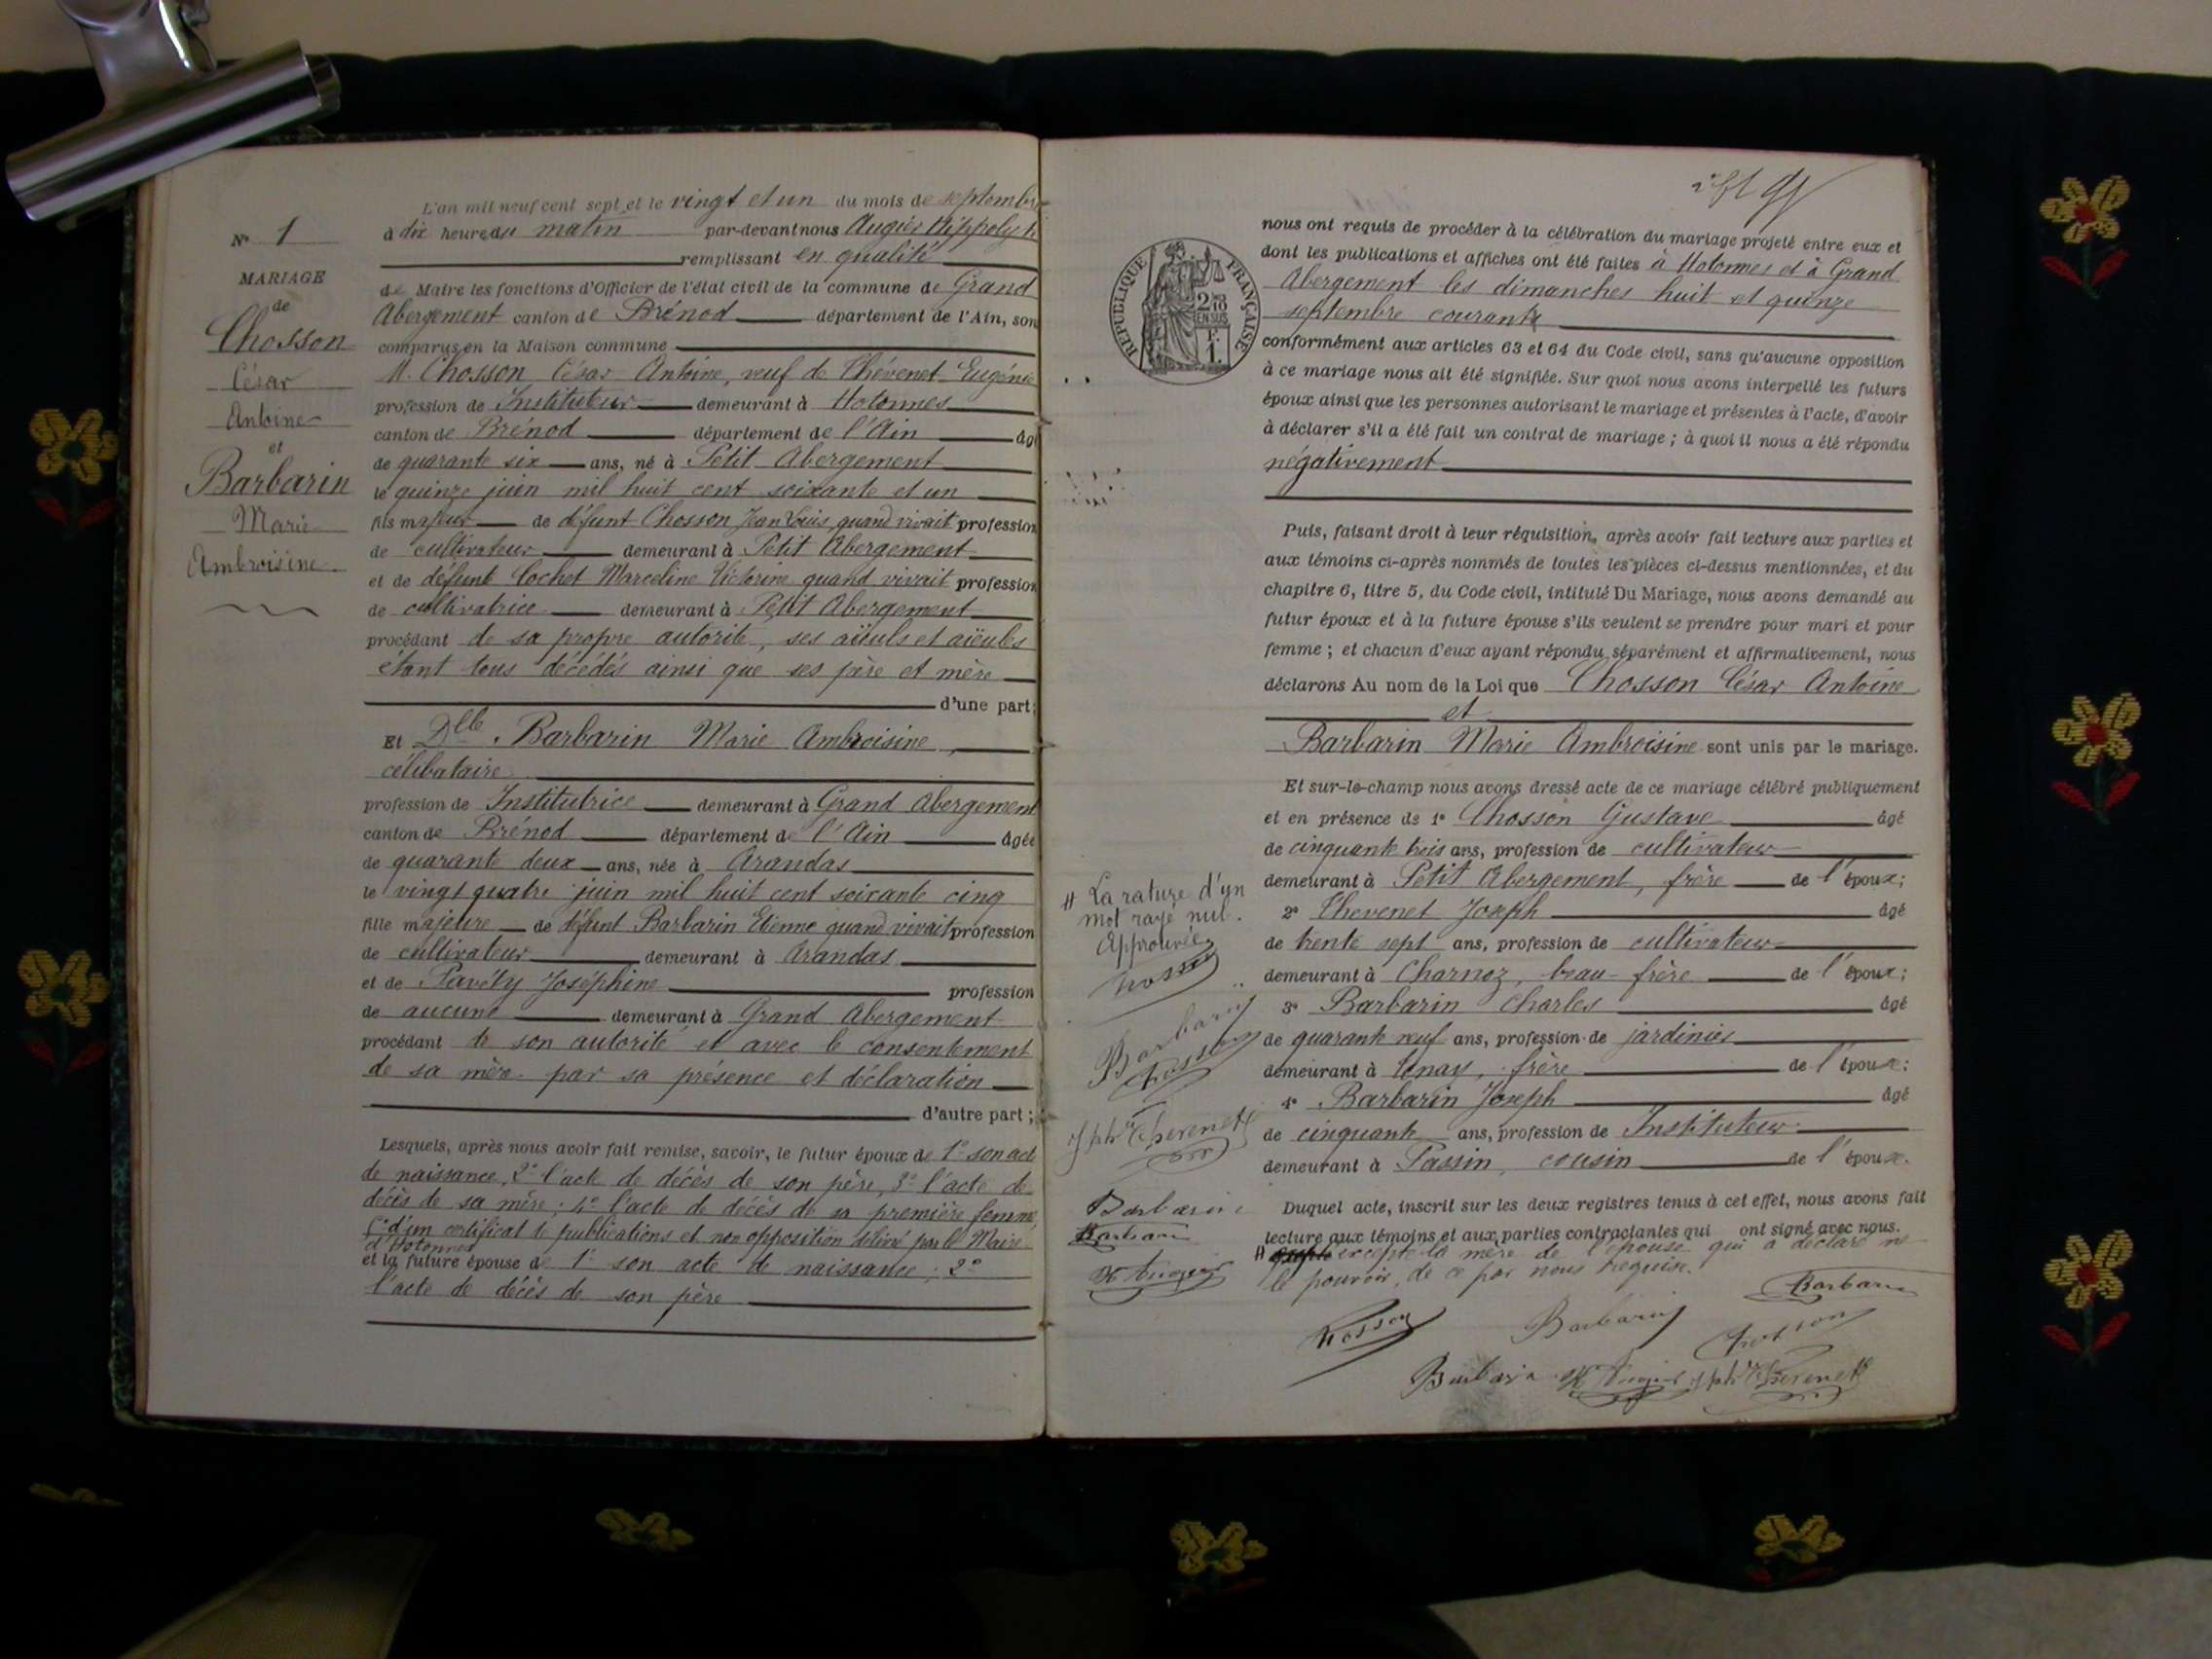 N° 1
MARIAGE
de
Chosson
César
Antoine
et
Barbarin
Marie
Ambroisine.
L'an mil neuf cent sept et le vingt et un du mois de septembre
à dix heures du matin par-devant nous Augier Hippolyte
remplissant en qualité
de Maire les fonctions d'Officier de l'état civil de la commune de Grand
Abergement canton de Brénod département de l'Ain, son
comparus en la Maison commune
M. Chosson César Antoine, veuf de Thévenet Eugénie
profession de Instituteur demeurant à Hotonnes
canton de Brénod département de l'Ain âgé
de quarante six ans, né à Petit Abergement
le quinze juin mil huit cent soixante et un
fils majeur de défunt Chosson Jean Louis, quand vivait profession
de cultivateur demeurant à Petit Abergement
et de défunte Cochet Marceline Victorine quand vivait profession
de cultivatrice demeurant à Petit Abergement
procédant de sa propre autorité, ses aïeuls et aïeules
étant tous décédés ainsi que ses père et mère
d'une part;
Et Dlle Barbarin Marie Ambroisine,
célibataire
profession de Institutrice demeurant à Grand Abergement
canton de Brénod département de l'Ain âgée
de quarante deux ans, née à Arandas
le vingt quatre juin mil huit cent soixante cinq
fille majeure de défunt Barbarin Etienne quand vivait profession
de cultivateur demeurant à Arandas
et de Pavély Joséphine profession
de aucune demeurant à Grand Abergement
procédant de son autorité et avec le consentement
de sa mère par sa présence et déclaration
d'autre part;
Lesquels, après nous avoir fait remise, savoir, le futur époux de 1° son acte
de naissance, 2° l'acte de décès de son père, 3° l'acte de
décès de sa mère; 4° l'acte de décès de sa première femme,
5° d'un certificat de publications et non opposition délivré par le Maire
d'Hotonnes
et la future épouse de 1° son acte de naissance; 2°
l'acte de décès de son père
RÉPUBLIQUE FRANÇAISE
2 DES
10
EN SUS
F.
1.
nous ont requis de procéder à la célébration du mariage projeté entre eux et
dont les publications et affiches ont été faites à Hotonnes et à Grand
Abergement les dimanches huit et quinze
septembre courant
conformément aux articles 63 et 64 du Code civil, sans qu'aucune opposition
à ce mariage nous ait été signifiée. Sur quoi nous avons interpellé les futurs
époux ainsi que les personnes autorisant le mariage et présentes à l'acte, d'avoir
à déclarer s'il a été fait un contrat de mariage; à quoi il nous a été répondu
négativement
Puis, faisant droit à leur réquisition, après avoir fait lecture aux parties et
aux témoins ci-après nommés de toutes les pièces ci-dessus mentionnées, et du
chapitre 6, titre 5, du Code civil, intitulé Du Mariage, nous avons demandé au
futur époux et à la future épouse s'ils veulent se prendre pour mari et pour
femme; et chacun d'eux ayant répondu séparément et affirmativement, nous
déclarons Au nom de la Loi que Chosson César Antoine
et
Barbarin Marie Ambroisine sont unis par le mariage.
Et sur-le-champ nous avons dressé acte de ce mariage célébré publiquement
et en présence de 1° Chosson Gustave âgé
de cinquante trois ans, profession de cultivateur
demeurant à Petit Abergement, frère de l'époux;
2° Thevenet Joseph âgé
de trente sept ans, profession de cultivateur
demeurant à Charnoz, beau-frère de l'époux;
3° Barbarin Charles âgé
de quarante neuf ans, profession de jardinier
demeurant à Tenay, frère de l'épouse;
4° Barbarin Joseph âgé
de cinquante ans, profession de Instituteur
demeurant à Passin, cousin de l'épouse.
Duquel acte, inscrit sur les deux registres tenus à cet effet, nous avons fait
lecture aux témoins et aux parties contractantes qui ont signé avec nous.
# excepté la mère de l'épouse qui a déclaré ne
le pouvoir, de ce par nous requise.
Barbarin
Chosson
Barbarin
Chosson
Barbarin
H Augier
Jph Thevenet
# La rature d'un
mot rayé nul.
Approuvée
Chosson
Barbarin
Chosson
Jph Thevenet
Barbarin
Barbarin
H Augier